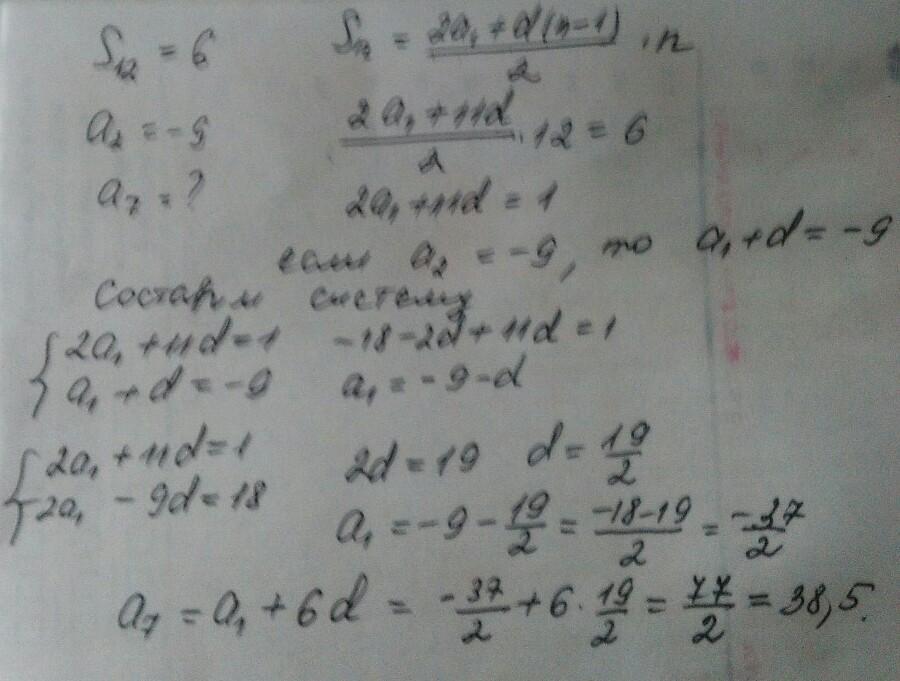 S₁₂ = 6 Sₙ = (2a₁ + d(n-1))/2 · n
a₂ = -9 (2a₁ + 11d)/2 · 12 = 6
a₇ = ? 2a₁ + 11d = 1
если a₂ = -9, то a₁ + d = -9
Составим систему
{ 2a₁ + 11d = 1 -18 - 2d + 11d = 1
{ a₁ + d = -9 a₁ = -9 - d
{ 2a₁ + 11d = 1 2d = 19 d = 19/2
{ -2a₁ - 9d = 18
a₁ = -9 - 19/2 = (-18-19)/2 = -37/2
a₇ = a₁ + 6d = -37/2 + 6 · 19/2 = 77/2 = 38,5.